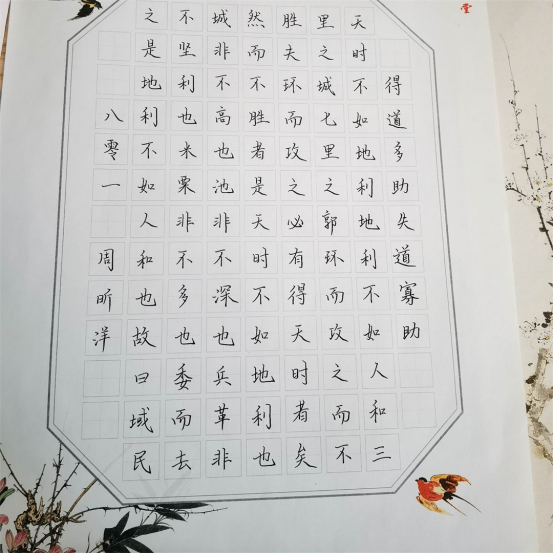 得道多助失道寡助
天时不如地利地利不如人和三
里之城七里之郭环而攻之而不
胜夫环而攻之必有得天时者矣
然而不胜者是天时不如地利也
城非不高也池非不深也兵革非
不坚利也米粟非不多也委而去
之是地利不如人和也故曰域民
八零一周昕洋